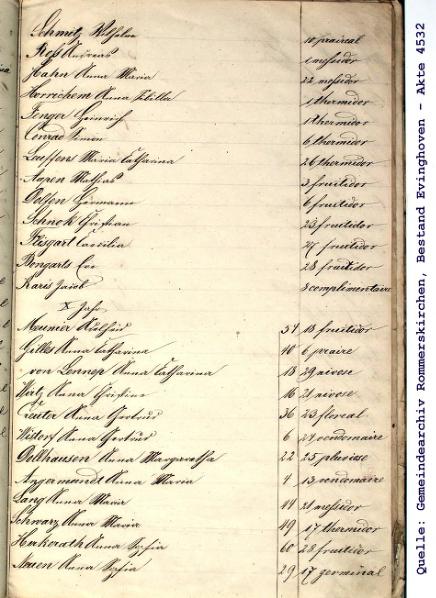 Schmitz Wilhelm 10 praireal
Reß Andreas 1 messidor
Hahn Anna Maria 22 messidor
Horrichem Anna Sibilla 1 thermidor
Fenger Heinrich 1 thermidor
Conrad Simon 6 thermidor
Lauffens Maria Catharina 26 thermidor
Aapen Mathias 3 fruitidor
Dolfen Hermann 6 fruitidor
Schnok Christian 23 fruitidor
Flisgart Caecilia 27 fruitidor
Bongarts Eva 28 fruitidor
Karis Jacob 3 complimentaire
X Jahr
Meunier 37 18 fruitidor
Gilles Anna Catharina 40 6 praire
von Lennep Anna Catharina 18 29 nivose
Wirtz Anna Christina 16 21 nivose
Anna Gertrud 36 23 floreal
Anna Gertrud 6 vendemaire
Dollhausen Anna Margaretha 22 25 pluviose
Angermandt Anna Maria 4 13 vendemaire
Lang Anna Maria 44 21 messidor
Schwarz Anna Maria 49 17 thermidor
Hakerath Anna Sophia 60 28 fruitidor
Nauen Anna Sophia 29 17 germinal
Quelle: Gemeindearchiv Rommerskirchen, Bestand Evinghoven - Akte 4532